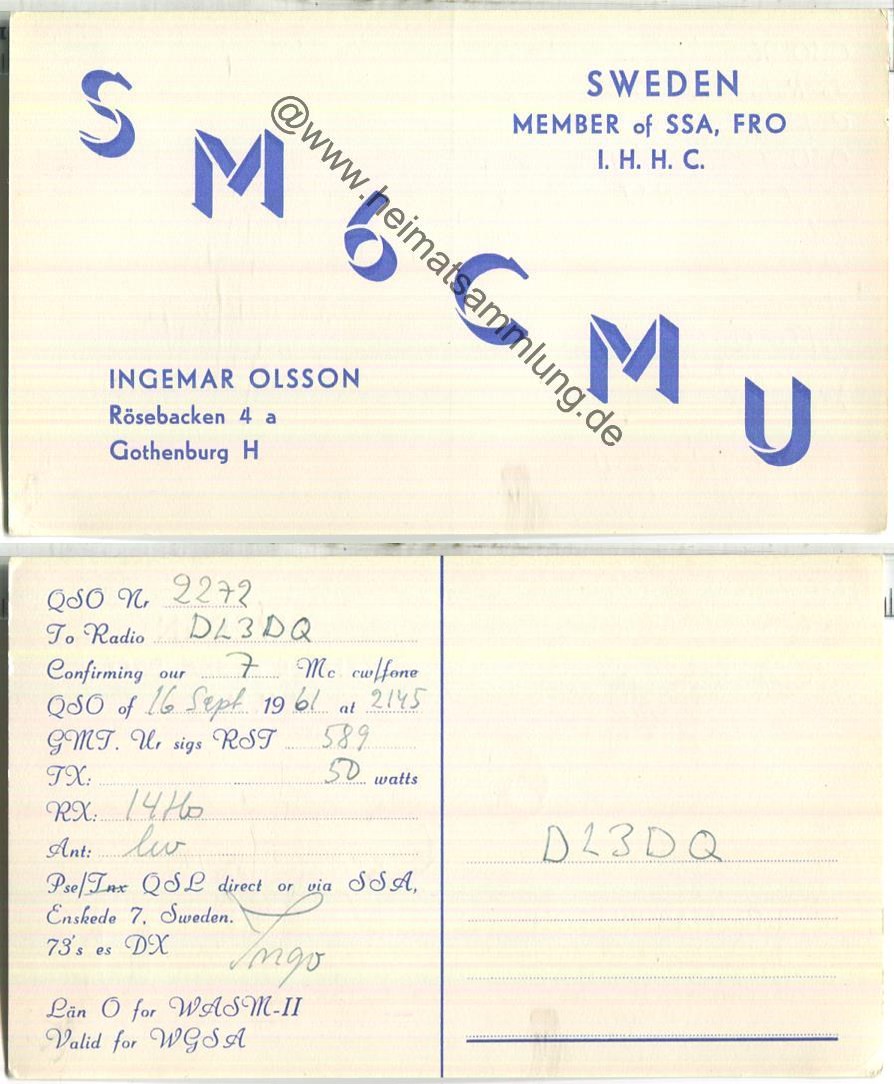 SM6CMU
SWEDEN
MEMBER of SSA, FRO
I. H. H. C.
@www.heimatsammlung.de
INGEMAR OLSSON
Rösebacken 4 a
Gothenburg H
QSO Nr 2272
To Radio DL3DQ
Confirming our 7 Mc cw/fone
QSO of 16 Sept 1961 at 2145
GMT. Ur sigs RST 589
TX: 50 watts
RX:
Ant: lw
Pse/Tnx QSL direct or via SSA,
Enskede 7, Sweden.
73's es DX Ingo
Län O for WASM-II
Valid for WGSA
DL3DQ